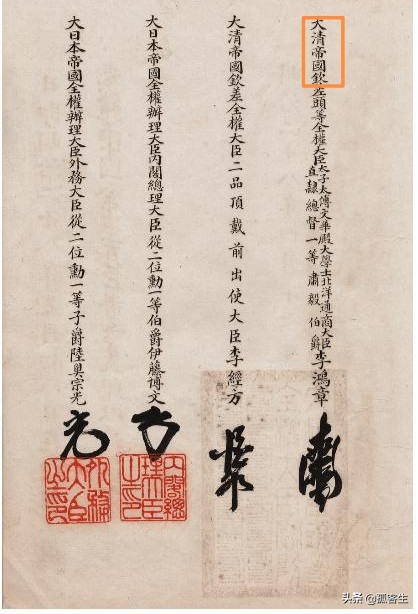 大清帝國欽差頭等全權大臣太子太傅文華殿大學士北洋通商大臣直隸總督一等肅毅伯爵李鴻章
大清帝國欽差全權大臣二品頂戴前出使大臣李經方
大日本帝國全權辦理大臣內閣總理大臣從二位勳一等伯爵伊藤博文
大日本帝國全權辦理大臣外務大臣從二位勳一等子爵陸奧宗光
內閣總理大臣之印
外務大臣之印
头条 @孤客生